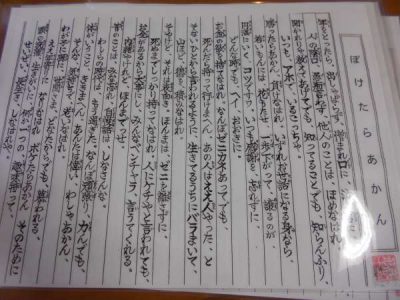 ぼけたらあかん
年をとったら、出しゃばらず、憎まれ口に
人のかげ口、他人のことは、ほめなはれ
聞かれりゃ教えてあげても、知ってることでも、知らんふり、
いつも、アホでいるこっちゃ。
勝ったらあかん、負けなはれ いずれお世話になる身なら、
若いもんには花もたせ、一歩下がって、譲るのが、
円満にいくコツですわ、いつも感謝を、忘れずに、
どんな時でも、へイおおきに。
お金の欲を捨てなはれ、なんぼゼニカネあってでも、
死んだら持って行けまへん、あの人はええ人やった、と
そないひとから言われるように、生きてるうちにバラまいて、
山ほど、徳を積みなはれ
そやけど、それは表向き、ほんまは、ゼニを離さずに、
死ぬまでしっかり持ってなはれ、人にケチやと言われても、
お金があるから大事にし、みんなベンチャラ、言うてくれる。
内緒やけれど、ほんまだっせ。
昔のことは、みな忘れ、自慢話は、しなさんな、
わしらの時代は、もう過ぎた、なんぼ頑張り、力んでも、
体がいうこと、ききまへん、あんたはえらい、わしゃあかん、
わが子に孫に、世間さま、どなたからでも、慕われる、
ええ年寄りになりなはれ ボケたらあかん、そのために
頭の洗濯、生きがいに、何か一つの趣味持って、
せいぜい長生き